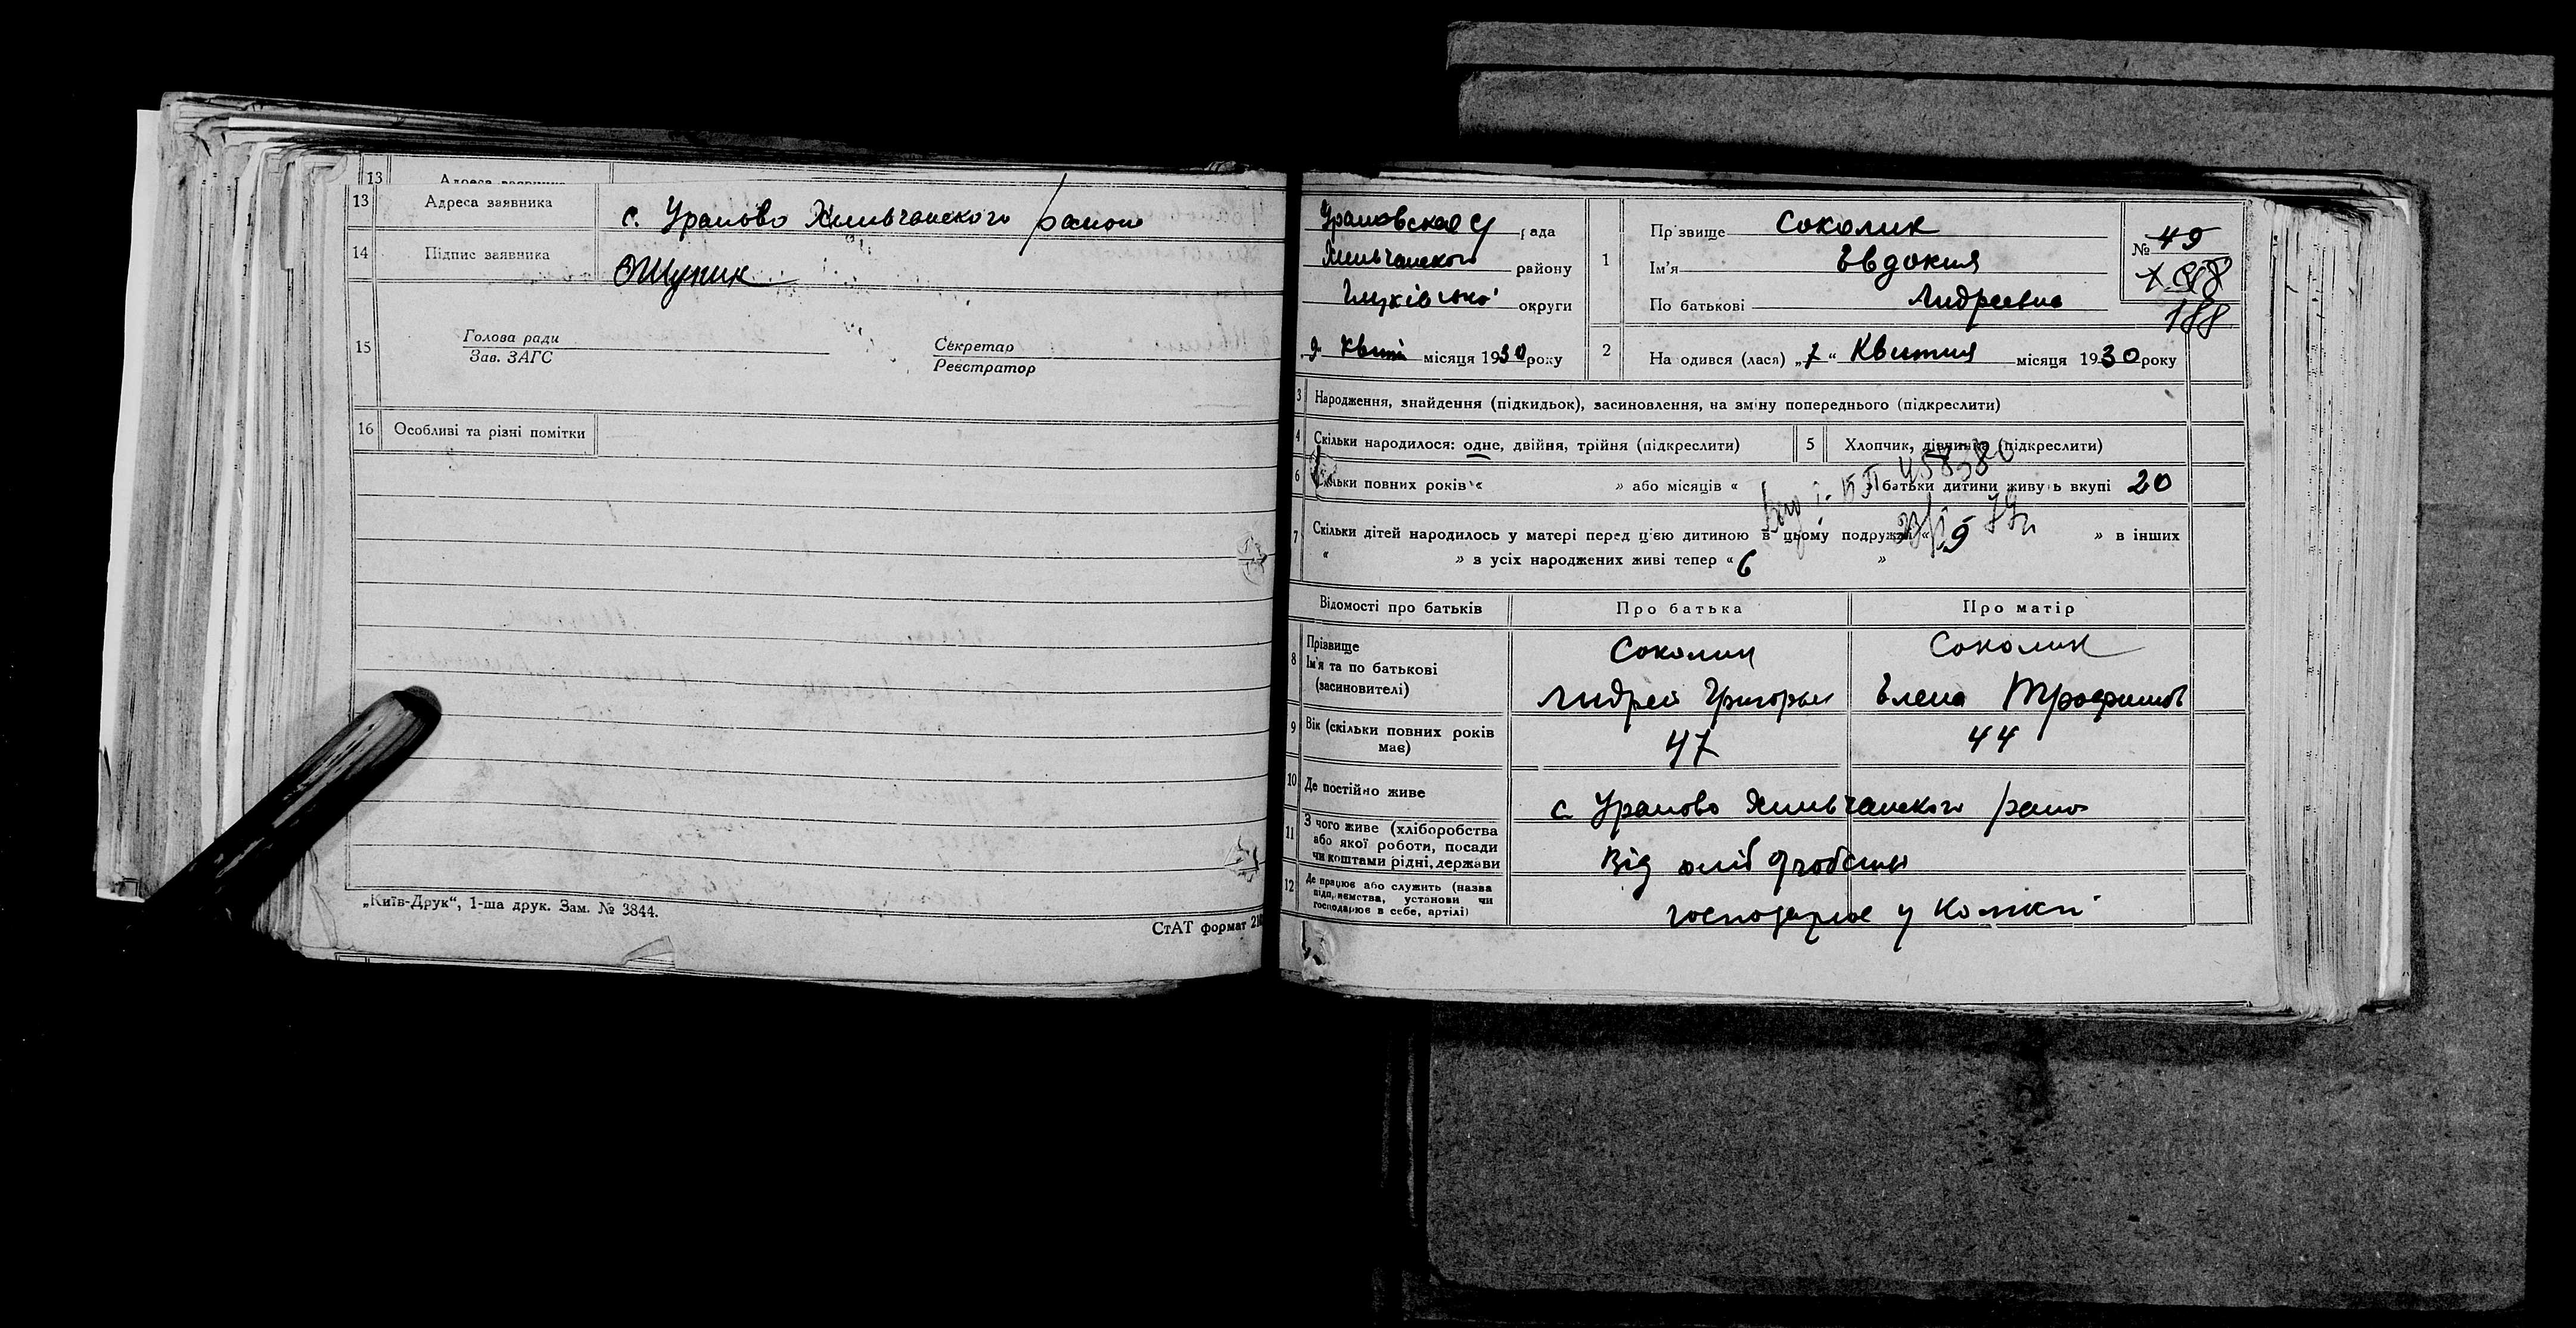 13 Адреса заявника
13 Адреса заявника с. Уралово Хильчанского району
14 Підпис заявника
15 Голова ради Секретар
Зав. ЗАГС Реєстратор
16 Особливі та різні помітки
„Київ-Друк“, 1-ша друк. Зам. № 3844.
СтАТ формат
рада
Хильчанского району
округи
9 місяця 1930 року
1 Прізвище Соколик
Ім'я Евдокия
По батькові Андреевна
№ 49
188
2 Народився (лася) „7“ Квитня місяця 1930 року
3 Народження, знайдення (підкидьок), засиновлення, на зміну попереднього (підкреслити)
4 Скільки народилося: одне, двійня, трійня (підкреслити) 5 Хлопчик, дівчинка (підкреслити)
6 Скільки повних років « » або місяців « » батьки дитини живуть вкупі 20
7 Скільки дітей народилось у матері перед цією дитиною в цьому подружжі « 9 » в інших
« » з усіх народжених живі тепер « 6 »
Відомості про батьків Про батька Про матір
8 Прізвище Соколик Соколик
Ім'я та по батькові
(засиновителі) Андрей Григорьев Елена Трофимов
9 Вік (скільки повних років має) 47 44
10 Де постійно живе с Уралово Хильчанского
11 З чого живе (хліборобства
або якої роботи, посади
чи коштами рідні, держави Від
12 Де працює або служить (назва
підприємства, установи чи
господарює в себе, артілі) господарює у